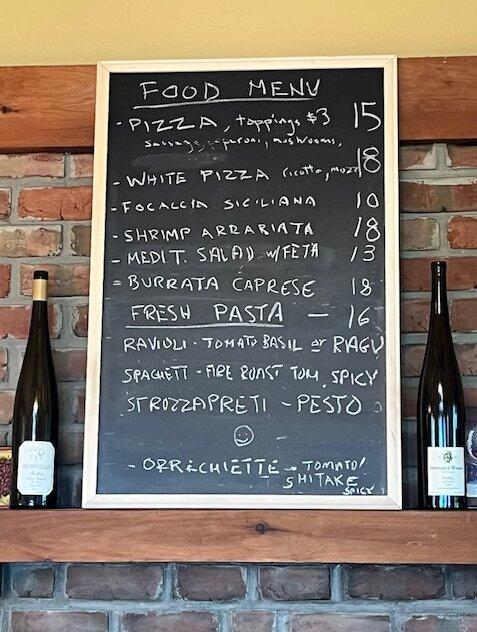 FOOD MENU
- PIZZA, toppings $3 15
sausage, peperoni, mushrooms,
- WHITE PIZZA ricotta, mozz 18
- FOCACCIA SICILIANA 10
- SHRIMP ARRABIATA 18
- MEDIT. SALAD w/FETA 13
- BURRATA CAPRESE 18
FRESH PASTA — 16
RAVIOLI - TOMATO BASIL or RAGU
SPAGHETTI - FIRE ROAST TOM, SPICY
STROZZAPRETI - PESTO
- ORRECHIETTE - TOMATO/
SHITAKE
SPICY
Riesling